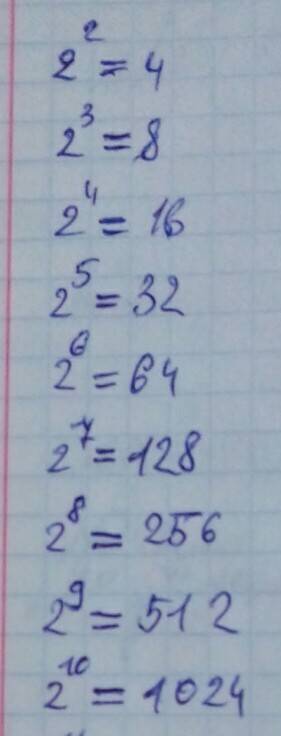 2² = 4
2³ = 8
2⁴ = 16
2⁵ = 32
2⁶ = 64
2⁷ = 128
2⁸ = 256
2⁹ = 512
2¹⁰ = 1024